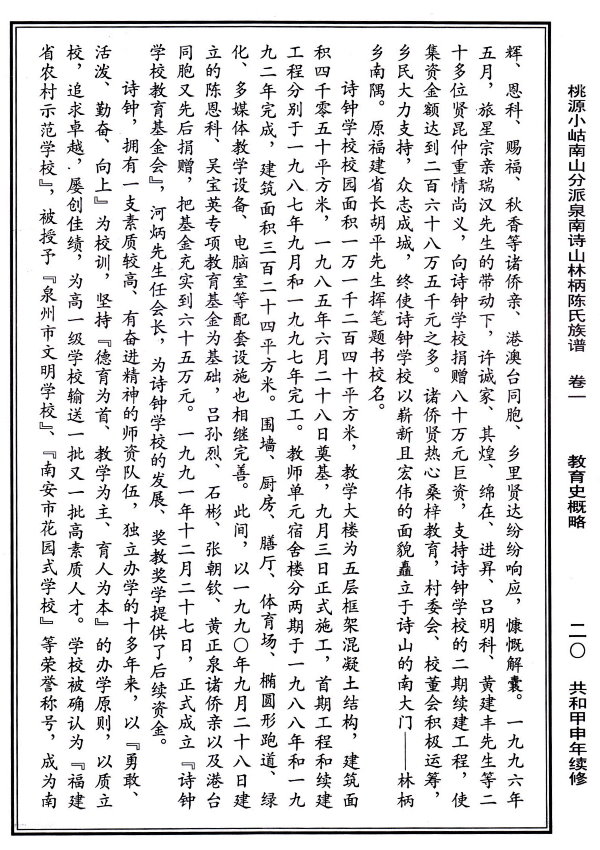 桃源小岵南山分派泉南诗山林柄陈氏族谱 卷一 教育史概略 二〇 共和甲申年续修
辉、恩科、赐福、秋香等诸侨亲、港澳台同胞、乡里贤达纷纷响应,慷慨解囊。一九九六年
五月,旅星宗亲瑞汉先生的带动下,许诚家、其煌、绵在、进昇、吕明科、黄建丰先生等二
十多位贤昆仲重情尚义,向诗钟学校捐赠八十万元巨资,支持诗钟学校的二期续建工程,使
集资金额达到二百六十八万五千元之多。诸侨贤热心桑梓教育,村委会、校董会积极运筹,
乡民大力支持,众志成城,终使诗钟学校以崭新且宏伟的面貌矗立于诗山的南大门——林柄
乡南隅。原福建省长胡平先生挥笔题书校名。
诗钟学校校园面积一万一千二百四十平方米,教学大楼为五层框架混凝土结构,建筑面
积四千零五十平方米,一九八五年六月二十八日奠基,九月三日正式施工,首期工程和续建
工程分别于一九八七年九月和一九九七年完工。教师单元宿舍楼分两期于一九八八年和一九
九二年完成,建筑面积三百二十四平方米。围墙、厨房、膳厅、体育场、椭圆形跑道、绿
化、多媒体教学设备、电脑室等配套设施也相继完善。此间,以一九九〇年九月二十八日建
立的陈恩科、吴宝英专项教育基金为基础,吕孙烈、石彬、张朝钦、黄正泉诸侨亲以及港台
同胞又先后捐赠,把基金充实到六十五万元。一九九一年十二月二十七日,正式成立『诗钟
学校教育基金会』,河炳先生任会长,为诗钟学校的发展、奖教奖学提供了后续资金。
诗钟,拥有一支素质较高、有奋进精神的师资队伍,独立办学的十多年来,以『勇敢、
活泼、勤奋、向上』为校训,坚持『德育为首、教学为主、育人为本』的办学原则,以质立
校,追求卓越,屡创佳绩,为高一级学校输送一批又一批高素质人才。学校被确认为『福建
省农村示范学校』,被授予『泉州市文明学校』、『南安市花园式学校』等荣誉称号,成为南